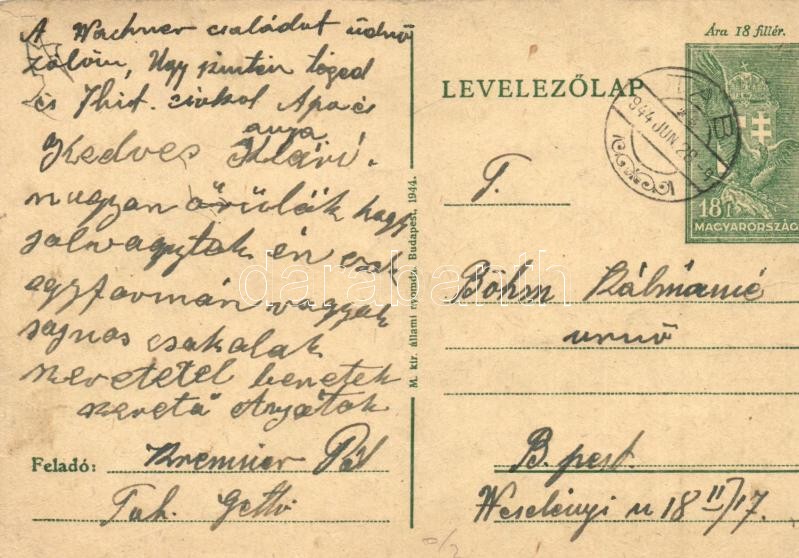 A Wachner családot üdvö
zölöm, Úgy szintén téged
és Apa és
anya
Kedves Klári.
nagyon örülök hogy
jól vagytok én csak
egyformán vagyok
sajnos csakalak
szeretetel benetek
szerető Anyátok
Feladó: Kremsier Pál
Tab. Gettó
M. kir. állami nyomda, Budapest, 1944.
Ára 18 fillér.
LEVELEZŐLAP
TAB
944 JUN 28
18 f
MAGYARORSZÁG
T.
Böhm Kálmánné
urnő
B.pest.
Weselényi u 18 II/17.
darabanth